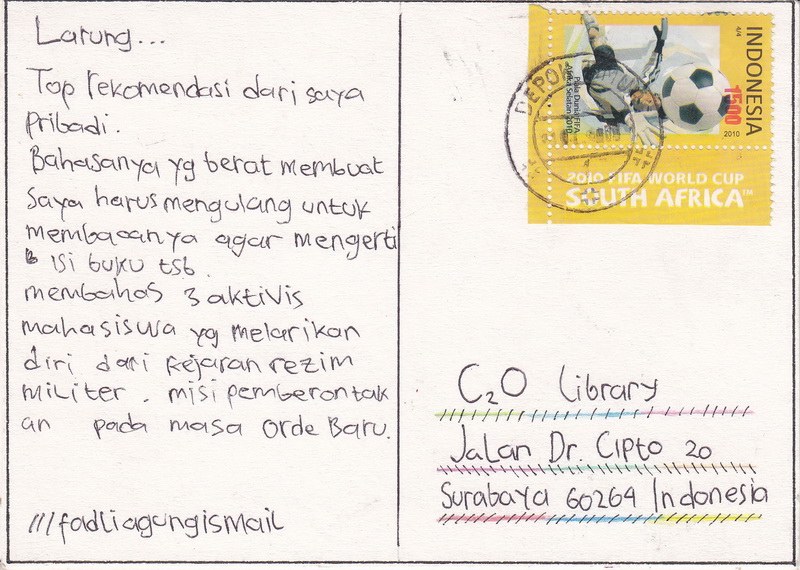 Larung...
Top rekomendasi dari saya
pribadi.
Bahasanya yg berat membuat
saya harus mengulang untuk
membacanya agar mengerti
isi buku tsb.
membahas 3 aktivis
mahasiswa yg melarikan
diri dari kejaran rezim
militer. misi pemberontak
an pada masa Orde Baru.
///fadliagungismail
INDONESIA
4/4
1500
2010
Piala Dunia FIFA
Afrika Selatan 2010
2010 FIFA WORLD CUP
SOUTH AFRICA™
DEPOK
C2O Library
Jalan Dr. Cipto 20
Surabaya 60264 Indonesia